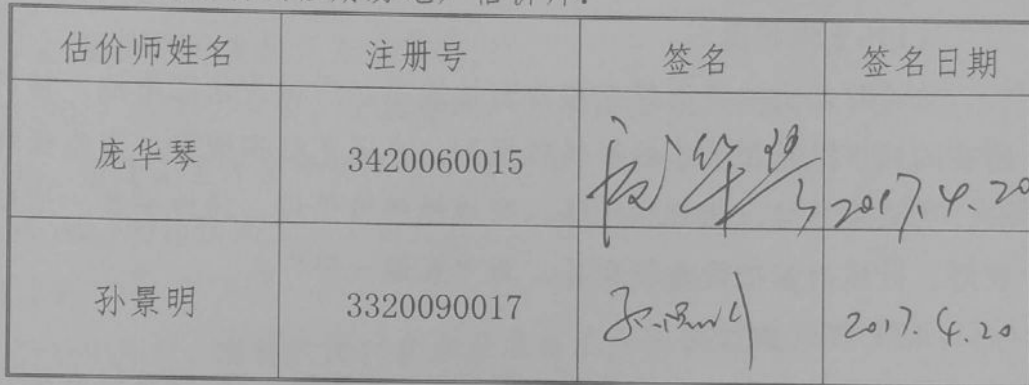 估价师姓名 注册号 签名 签名日期
庞华琴 3420060015 庞华琴 2017.4.20
孙景明 3320090017 孙景明 2017.4.20